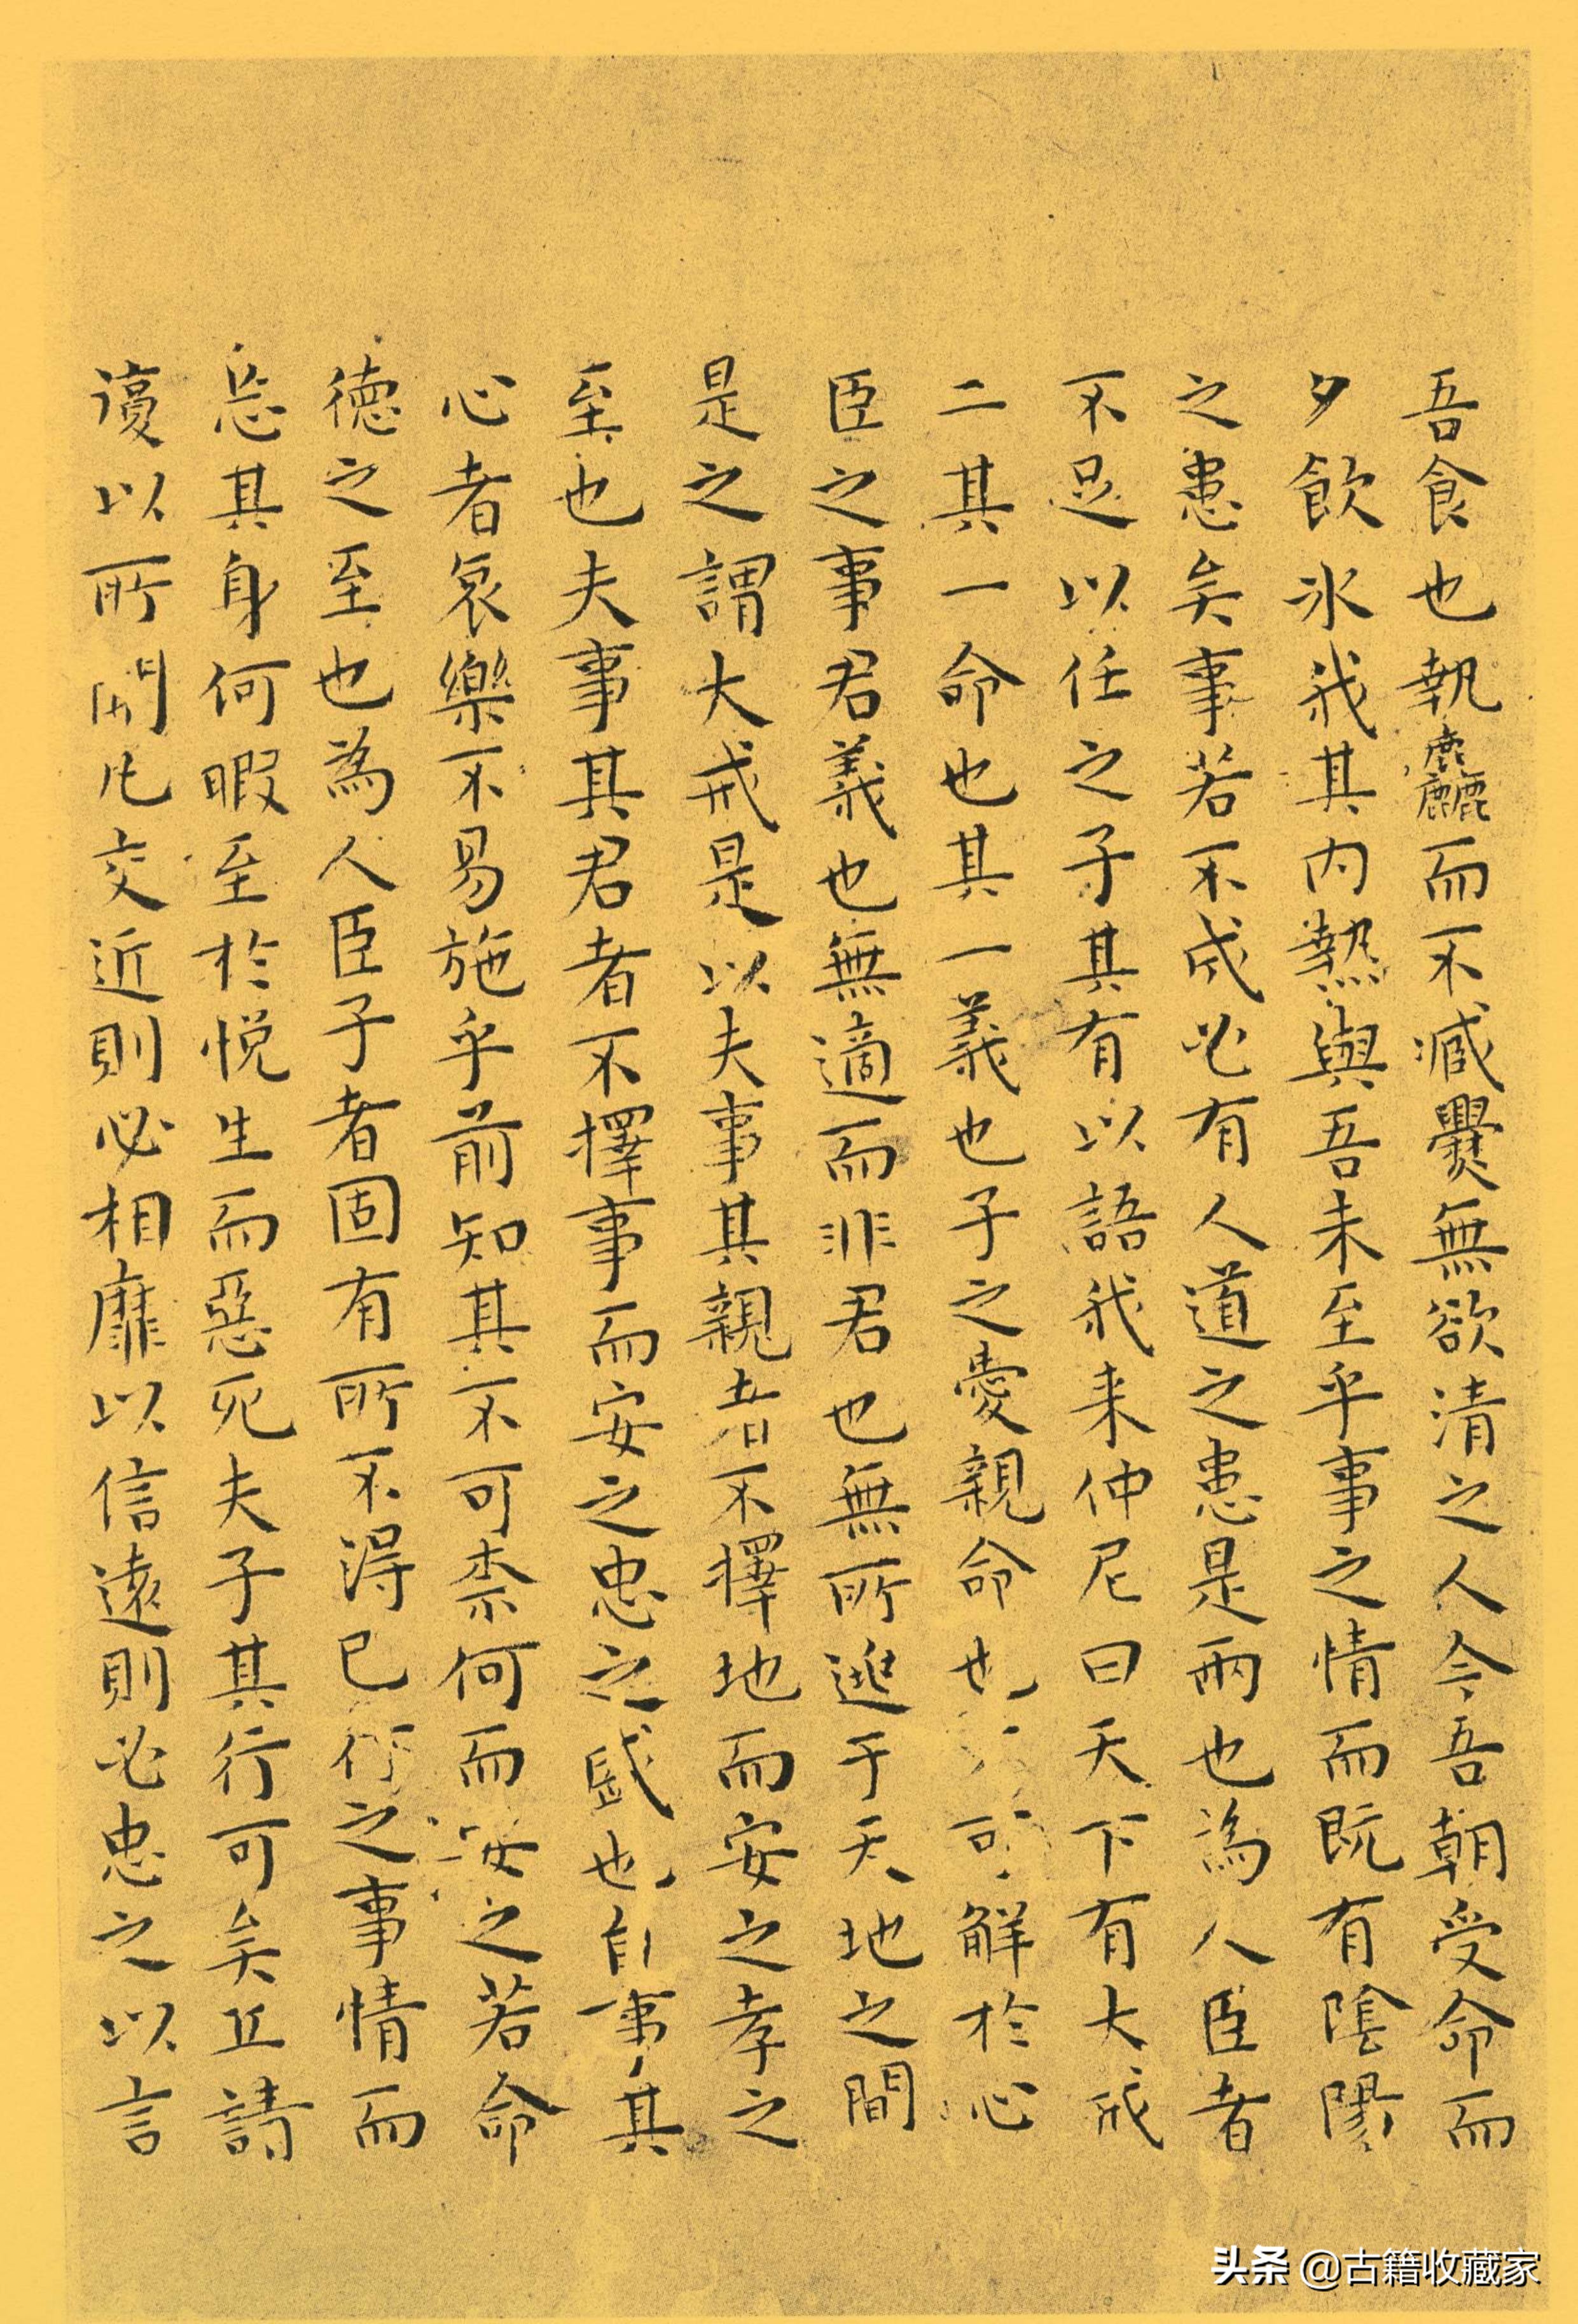 吾食也執麤而不臧爨無欲清之人今吾朝受命而
夕飲氷我其內熱與吾未至乎事之情而既有陰陽
之患矣事若不成必有人道之患是兩也為人臣者
不足以任之子其有以語我来仲尼曰天下有大戒
二其一命也其一義也子之愛親命也可解於心
臣之事君義也無適而非君也無所逃于天地之間
是之謂大戒是以夫事其親者不擇地而安之孝之
至也夫事其君者不擇事而安之忠之盛也自事其
心者哀樂不易施乎前知其不可柰何而安之若命
德之至也為人臣子者固有所不得已行之事情而
忘其身何暇至於悅生而惡死夫子其行可矣丘請
復以所聞凡交近則必相靡以信遠則必忠之以言
头条 @古籍收藏家